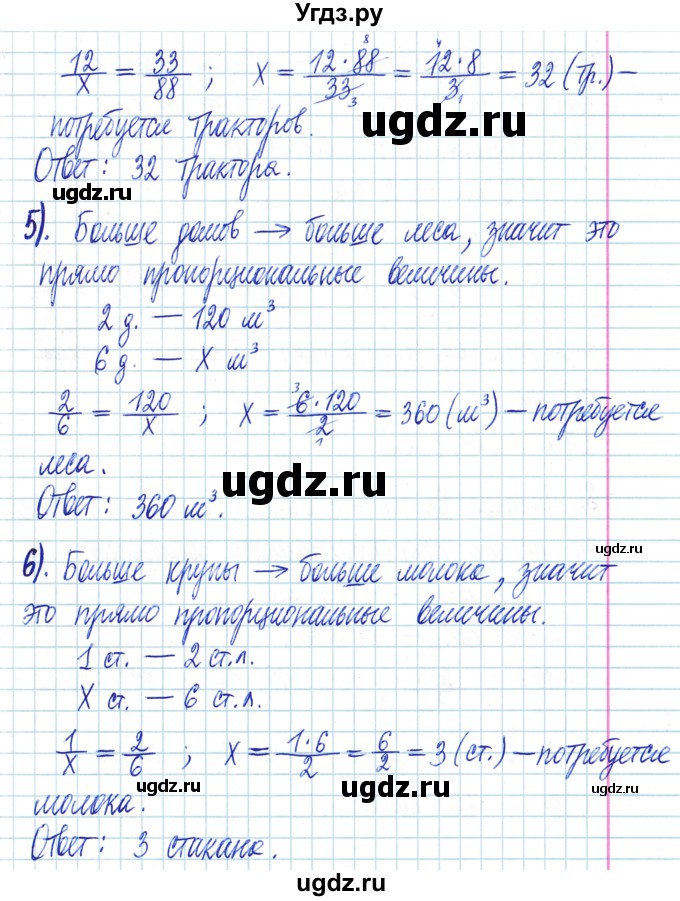 Угдз.ру
12/х = 33/88 ; х = 12·88/33 = 12·8/3 = 32 (тр.) –
потребуется тракторов.
Ответ: 32 трактора.
5). Больше домов → больше леса, значит это
прямо пропорциональные величины.
2 д. — 120 м³
6 д. — х м³
2/6 = 120/х ; х = 6·120/2 = 360 (м³) – потребуется
леса.
Ответ: 360 м³.
6). Больше крупы → больше молока, значит
это прямо пропорциональные величины.
1 ст. — 2 ст.л.
х ст. — 6 ст.л.
1/х = 2/6 ; х = 1·6/2 = 6/2 = 3 (ст.) – потребуется
молока.
Ответ: 3 стакана.
ugdz.ru
ugdz.ru
ugdz.ru
ugdz.ru
ugdz.ru
ugdz.ru
ugdz.ru
ugdz.ru